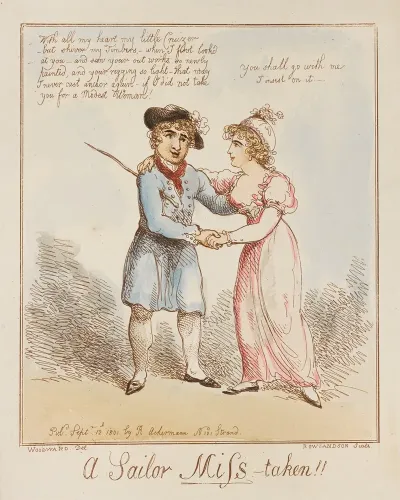 With all my heart my little Cruizer
- but shiver my Timbers - when I first look'd
at you - and saw your out works so newly
painted, and your rigging so tight - that may
I never cast anchor again - if I did not take
you for a Modest Woman.
You shall go with me
I insist on it -
Pub. Sept. 1801 by R. Ackermann No. 101 Strand.
Woodward Del.
ROWLANDSON Sculp
A Sailor Miss-taken!!